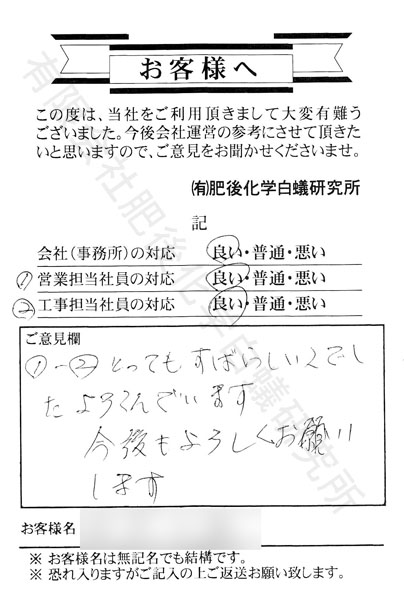 お客様へ
この度は、当社をご利用頂きまして大変有難う
ございました。今後会社運営の参考にさせて頂きた
いと思いますので、ご意見をお聞かせくださいませ。
㈲肥後化学白蟻研究所
記
会社(事務所)の対応 良い・普通・悪い
① 営業担当社員の対応 良い・普通・悪い
② 工事担当社員の対応 良い・普通・悪い
ご意見欄
①-② とってもすばらしいくでし
た よろこんでいます
今後もよろしくお願い
します
お客様名
※ お客様名は無記名でも結構です。
※ 恐れ入りますがご記入の上ご返送お願い致します。
有限会社肥後化学白蟻研究所